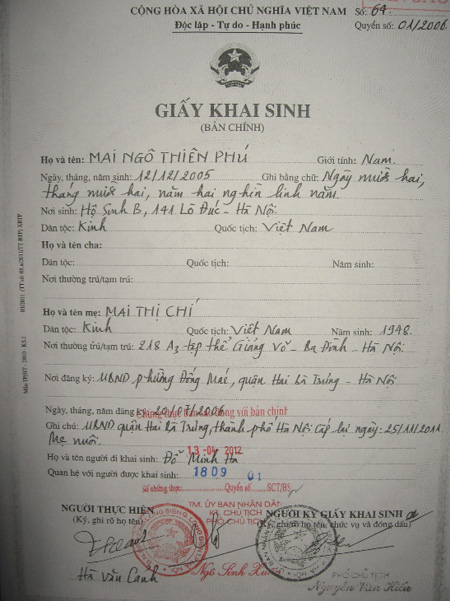 CỘNG HÒA XÃ HỘI CHỦ NGHĨA VIỆT NAM Số: 64
Độc lập - Tự do - Hạnh phúc Quyển số: 01/2006
GIẤY KHAI SINH
(BẢN CHÍNH)
Họ và tên: MAI NGÔ THIÊN PHÚ Giới tính: Nam.
Ngày, tháng, năm sinh: 12/12/2005 Ghi bằng chữ: Ngày mười hai,
tháng mười hai, năm hai nghìn linh năm.
Nơi sinh: Hộ Sinh B, 141 Lò Đúc - Hà Nội
Dân tộc: Kinh Quốc tịch: Việt Nam
Họ và tên cha:
Dân tộc: Quốc tịch: Năm sinh:
Nơi thường trú/tạm trú:
Họ và tên mẹ: MAI THỊ CHÍ
Dân tộc: Kinh Quốc tịch: Việt Nam Năm sinh: 1948.
Nơi thường trú/tạm trú: 218 A3 tập thể Giảng Võ - Ba Đình - Hà Nội
Nơi đăng ký: UBND phường Đống Mác, quận Hai Bà Trưng - Hà Nội
Ngày, tháng, năm đăng ký: 20/07/2006
Chứng thực đúng với bản chính
Ghi chú: UBND quận Hai Bà Trưng, thành phố Hà Nội Cấp lại ngày: 25/11/2011.
Mẹ nuôi.
13-04-2012
Họ và tên người đi khai sinh: Đỗ Minh Hà
Quan hệ với người được khai sinh: 1809 01
Số chứng thực Quyển số SCT/BS
TM. ỦY BAN NHÂN DÂN
KT. CHỦ TỊCH
PHÓ CHỦ TỊCH
NGƯỜI THỰC HIỆN NGƯỜI KÝ GIẤY KHAI SINH
(Ký, ghi rõ họ tên) (Ký, ghi rõ họ tên, chức vụ và đóng dấu)
PHÓ CHỦ TỊCH
Hà Văn Canh Ngô Sinh Nguyễn Văn Hiếu